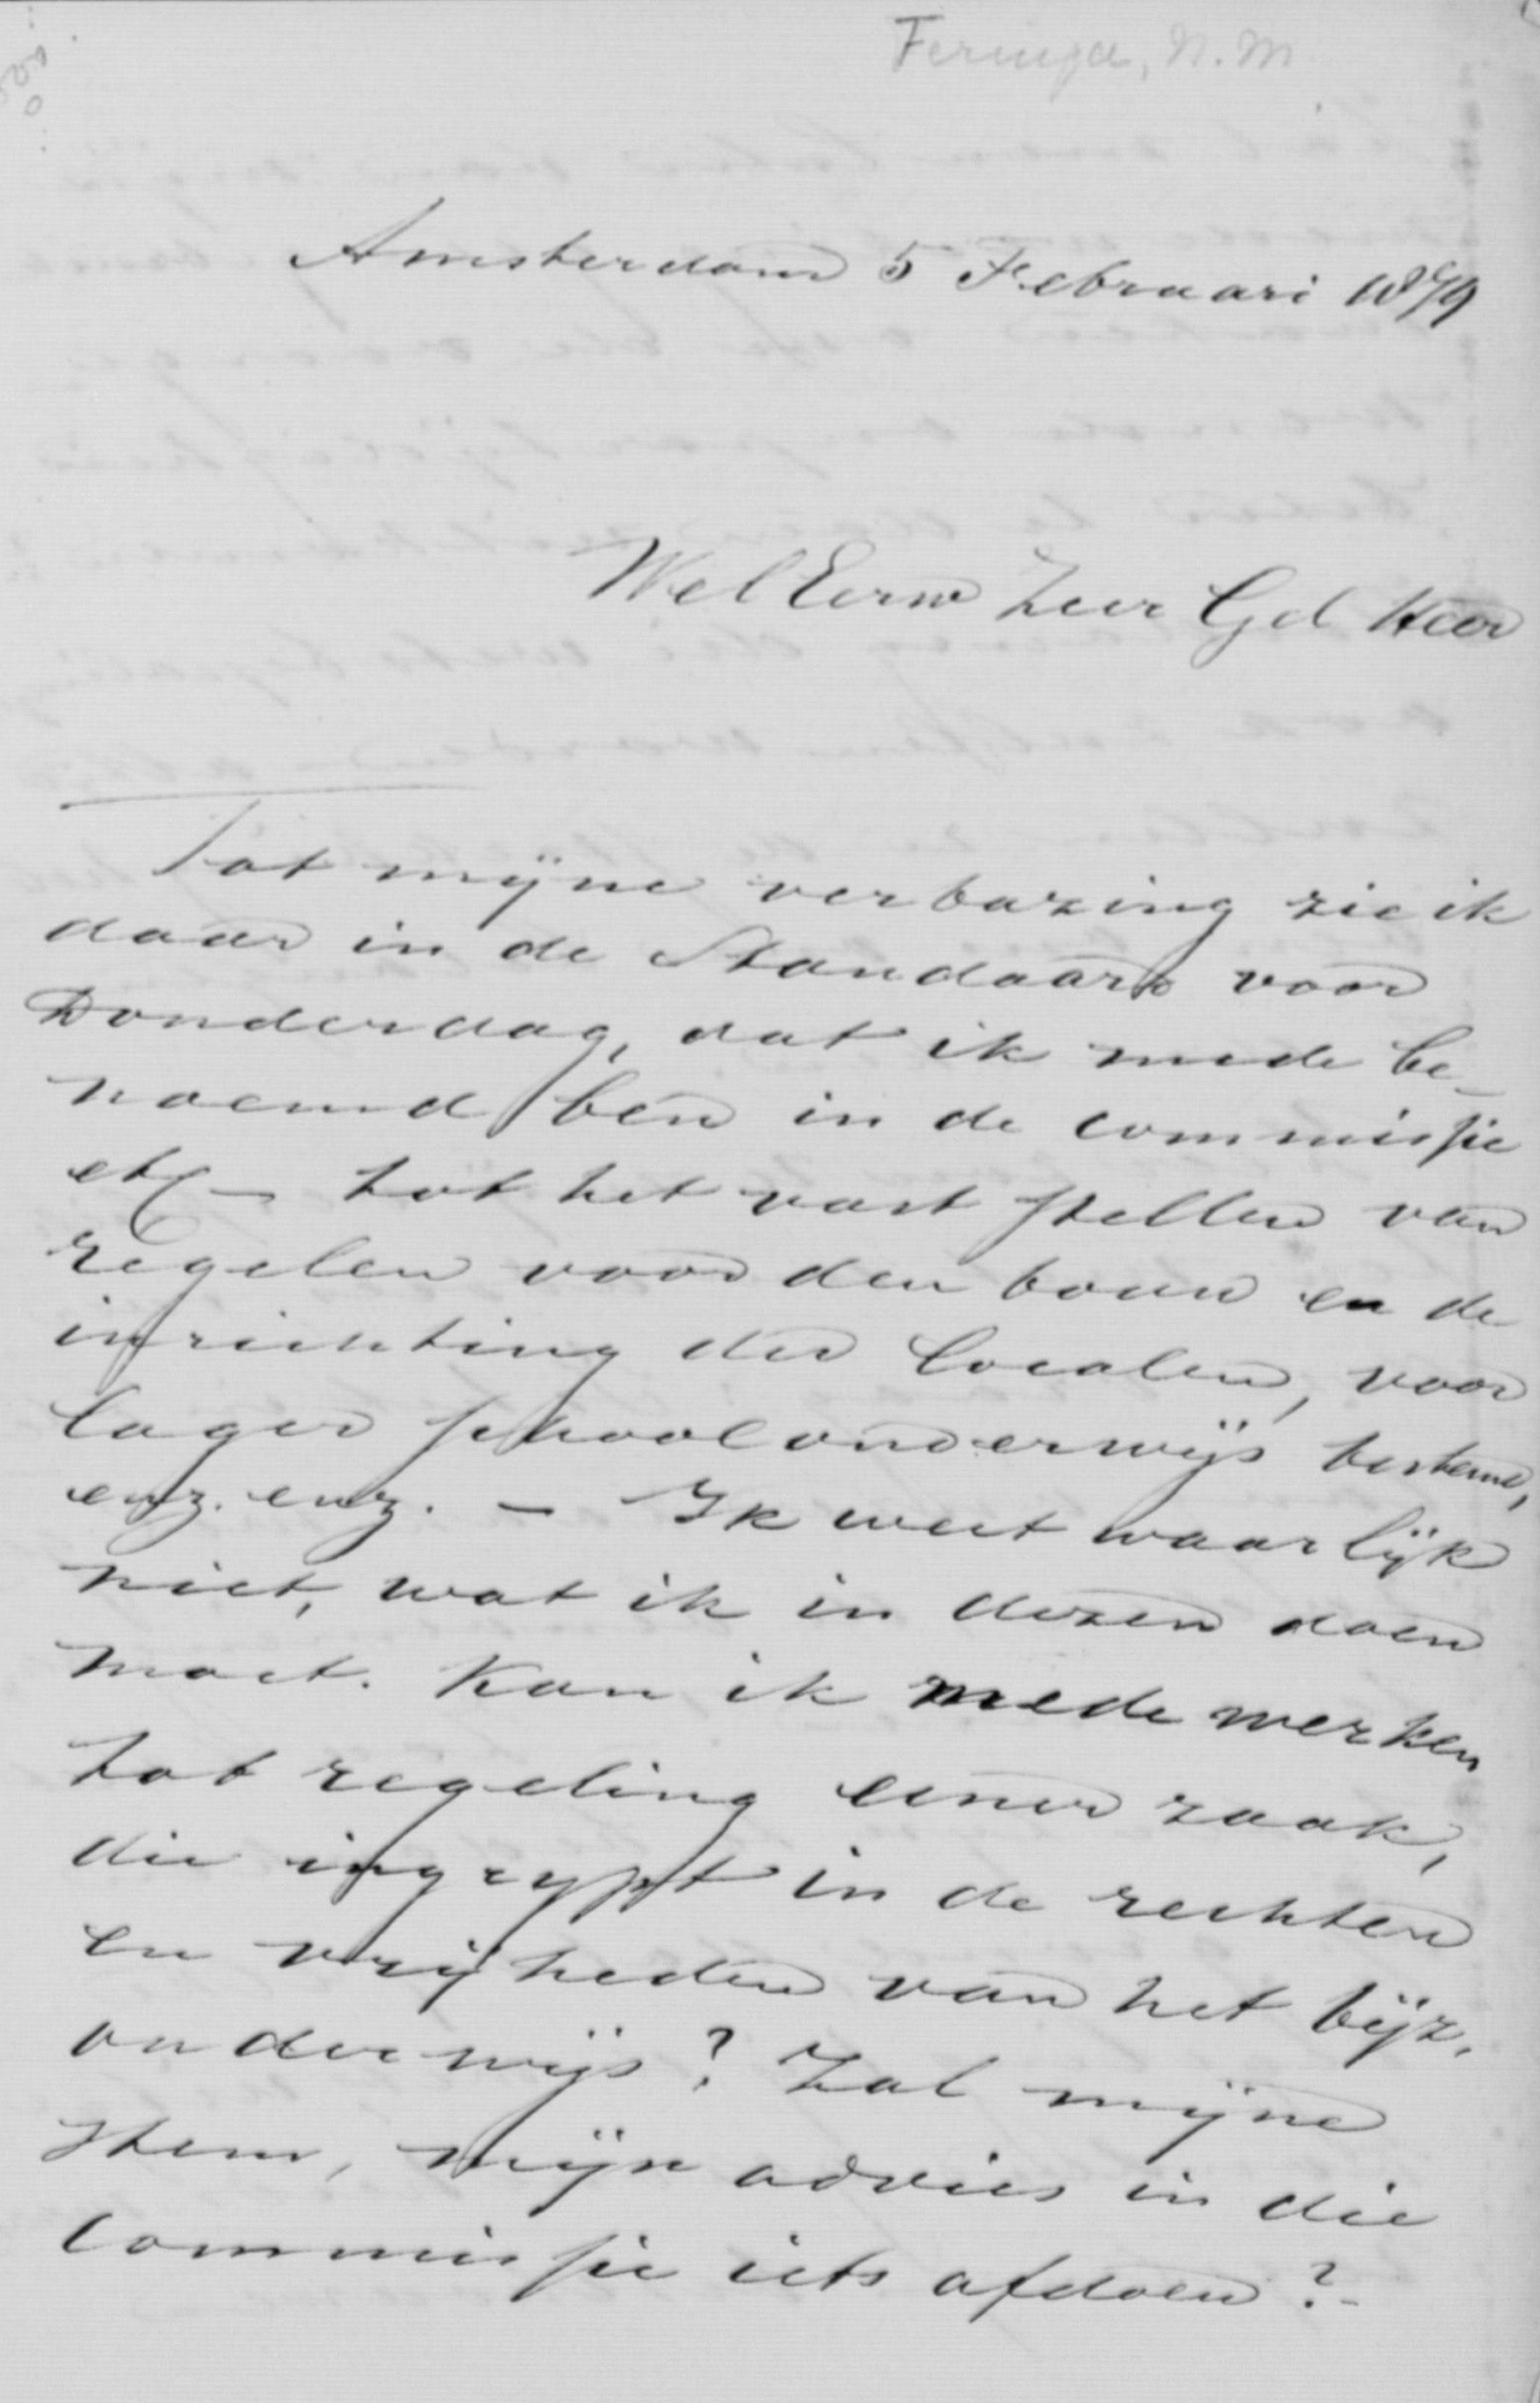 Feringa, N. M
Amsterdam 5 Februari 1879
WelEerw Zeer Gel Heer
Tot mijne verbazing zie ik
daar in de Standaard voor
Donderdag, dat ik mede be-
noemd ben in de commissie
etc - tot het vast stellen van
regelen voor den bouw en de
inrichting der localen, voor
lager schoolonderwijs bestemd,
enz. enz. - Ik weet waarlijk
niet, wat ik in dezen doen
moet. Kan ik mede werken
tot regeling eener zaak,
die ingrypt in de rechten
en vrijheden van het bijz.
onderwijs? Zal mijne
stem, mijn advies in die
commissie iets afdoen? -